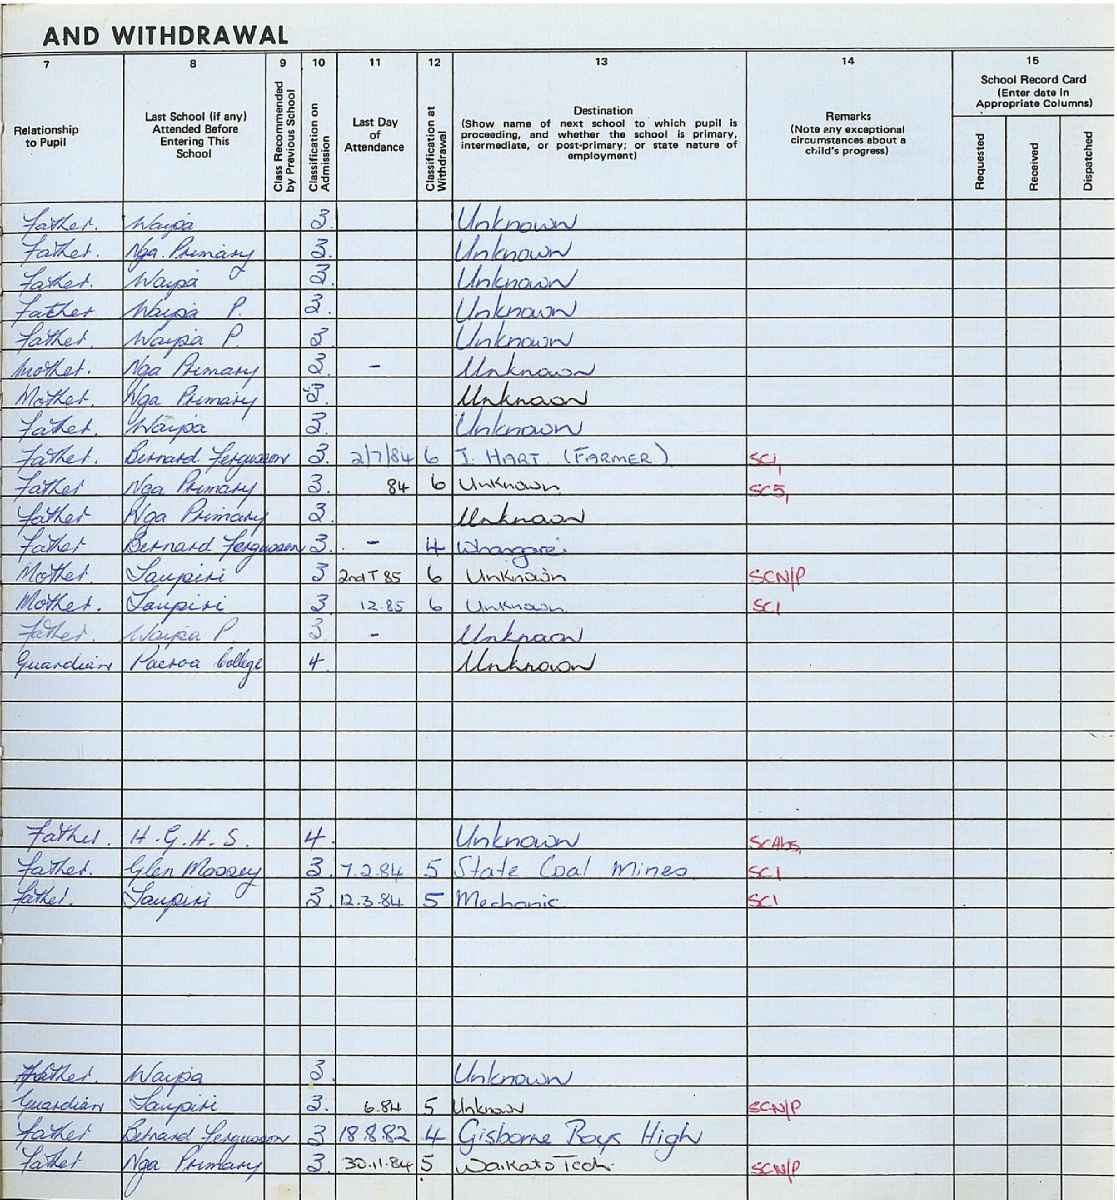 AND WITHDRAWAL
7 8 9 10 11 12 13 14 15
Relationship to Pupil
Last School (if any) Attended Before Entering This School
Class Recommended by Previous School
Classification on Admission
Last Day of Attendance
Classification at Withdrawal
Destination (Show name of next school to which pupil is proceeding, and whether the school is primary, intermediate, or post-primary; or state nature of employment)
Remarks (Note any exceptional circumstances about a child's progress)
School Record Card (Enter date in Appropriate Columns)
Requested
Received
Dispatched
Father. Waipa 3. Unknown
Father. Nga. Primary 3. Unknown
Father. Waipa 3. Unknown
Father Waipa P. 3. Unknown
Father. Waipa P. 3. Unknown
Mother. Nga Primary 3. – Unknown
Mother. Nga Primary 3. Unknown
Father. Waipa 3. Unknown
Father. Bernard Fergusson 3. 2/7/84 6 J. HART. (FARMER) SC1,
Father Nga Primary 3. 84 6 Unknown. SC5,
Father Nga Primary 3. Unknown
Father Bernard Fergusson 3. – 4 Whangarei
Mother. Taupiri 3 2nd T 85 6 Unknown SCN/P
Mother. Taupiri 3 12.85 6 Unknown. SC1
Father. Waipa P 3. – Unknown
Guardian Paeroa College 4. Unknown
Father. H.G.H.S. 4. Unknown SCAbs,
Father. Glen Massey 3. 7.2.84 5 State Coal Mines SC1
Father. Taupiri 3. 12.3.84 5 Mechanic. SC1
Father. Waipa 3. Unknown
Guardian Taupiri 3. 6.84 5 Unknown SCN/P
Father Bernard Fergusson 3 18.8.82 4 Gisborne Boys High
Father Nga Primary 3. 30.11.84 5 Waikato Tech. SCN/P